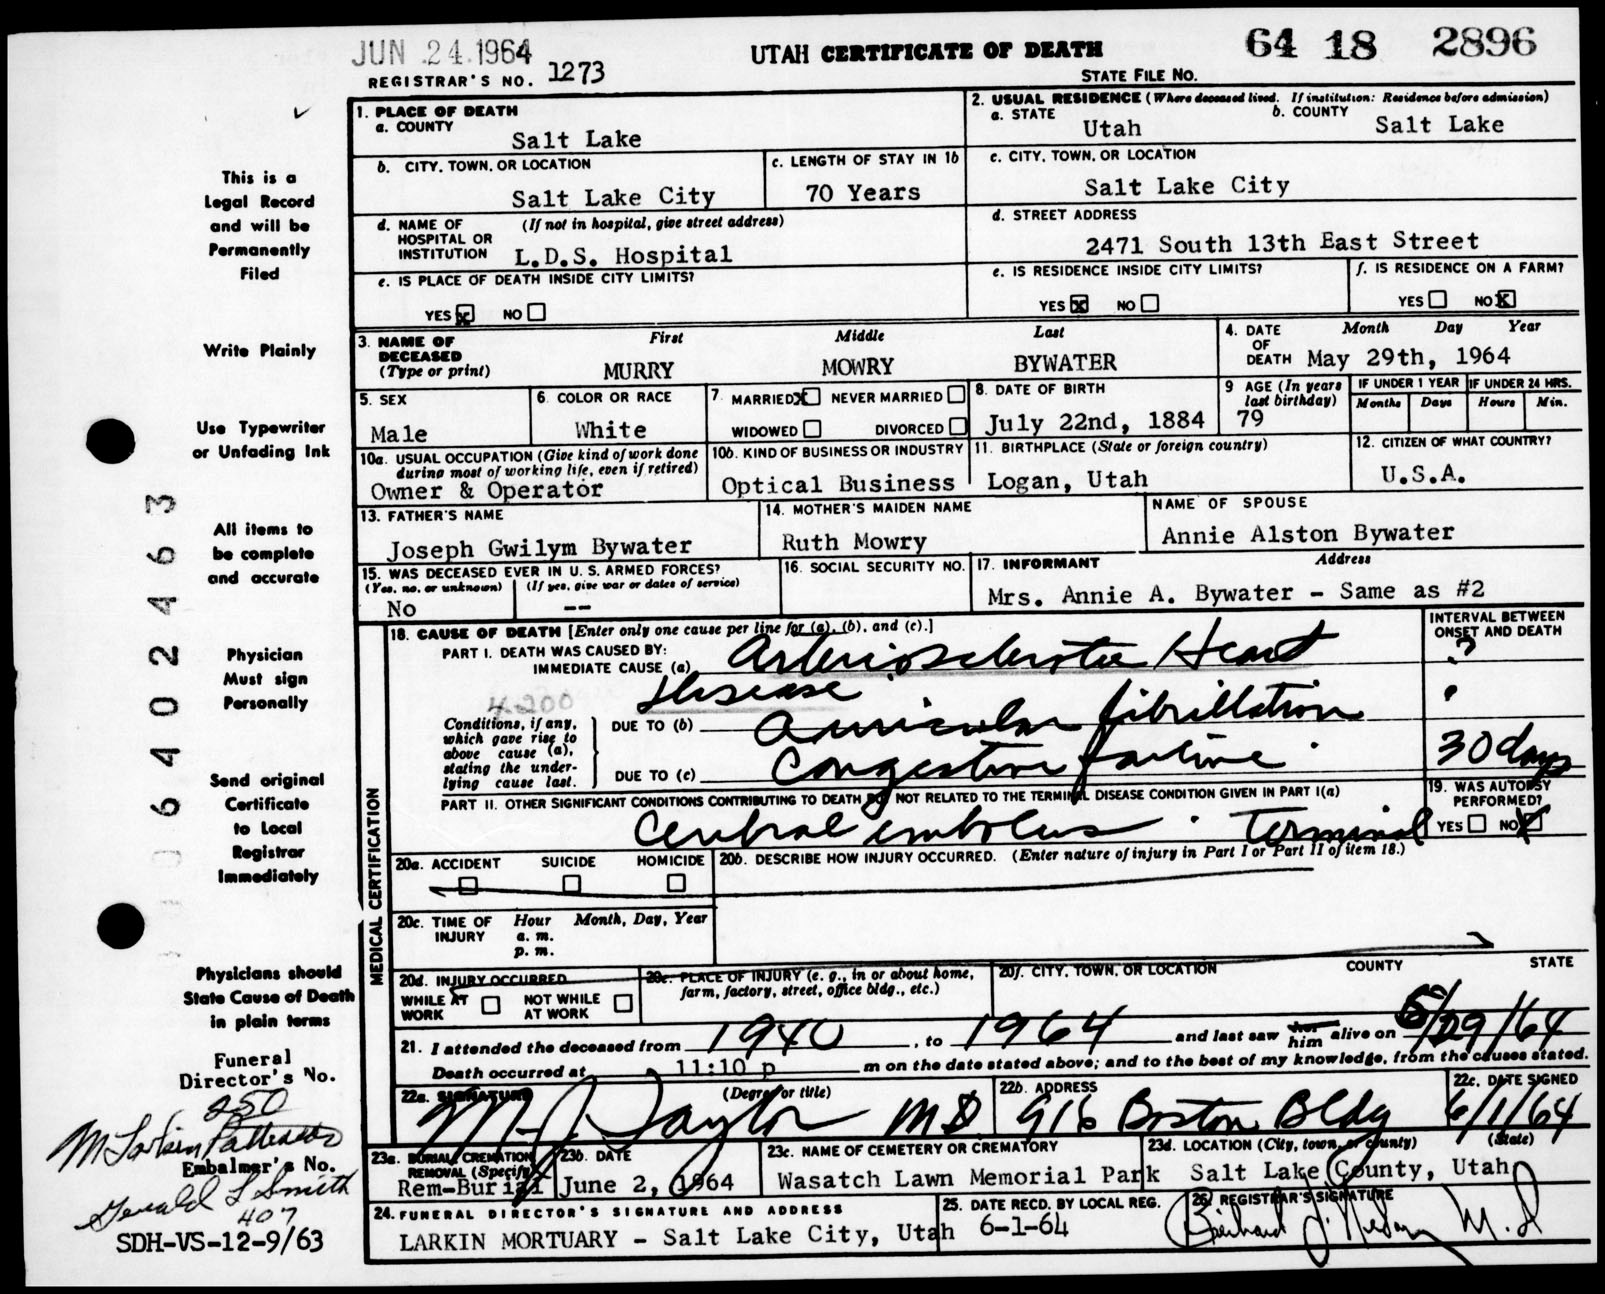 JUN 24 1964
UTAH CERTIFICATE OF DEATH
64 18 2896
REGISTRAR'S NO. 1273
STATE FILE NO.
1. PLACE OF DEATH
a. COUNTY
Salt Lake
2. USUAL RESIDENCE (Where deceased lived. If institution: Residence before admission)
a. STATE
Utah
b. COUNTY
Salt Lake
b. CITY, TOWN, OR LOCATION
Salt Lake City
c. LENGTH OF STAY IN 1b
70 Years
c. CITY, TOWN, OR LOCATION
Salt Lake City
d. NAME OF HOSPITAL OR INSTITUTION
(If not in hospital, give street address)
L.D.S. Hospital
d. STREET ADDRESS
2471 South 13th East Street
e. IS PLACE OF DEATH INSIDE CITY LIMITS?
YES X NO
e. IS RESIDENCE INSIDE CITY LIMITS?
YES X NO
f. IS RESIDENCE ON A FARM?
YES NO X
3. NAME OF DECEASED (Type or print)
First Middle Last
MURRY MOWRY BYWATER
4. DATE OF DEATH
Month Day Year
May 29th, 1964
5. SEX
Male
6. COLOR OR RACE
White
7. MARRIED X NEVER MARRIED
WIDOWED DIVORCED
8. DATE OF BIRTH
July 22nd, 1884
9 AGE (In years last birthday)
79
IF UNDER 1 YEAR IF UNDER 24 HRS.
Months Days Hours Min.
10a. USUAL OCCUPATION (Give kind of work done during most of working life, even if retired)
Owner & Operator
10b. KIND OF BUSINESS OR INDUSTRY
Optical Business
11. BIRTHPLACE (State or foreign country)
Logan, Utah
12. CITIZEN OF WHAT COUNTRY?
U.S.A.
13. FATHER'S NAME
Joseph Gwilym Bywater
14. MOTHER'S MAIDEN NAME
Ruth Mowry
NAME OF SPOUSE
Annie Alston Bywater
15. WAS DECEASED EVER IN U. S. ARMED FORCES?
(Yes, no, or unknown) (If yes, give war or dates of service)
No --
16. SOCIAL SECURITY NO.
17. INFORMANT Address
Mrs. Annie A. Bywater - Same as #2
MEDICAL CERTIFICATION
18. CAUSE OF DEATH [Enter only one cause per line for (a), (b), and (c).]
INTERVAL BETWEEN ONSET AND DEATH
PART I. DEATH WAS CAUSED BY:
IMMEDIATE CAUSE (a) Arteriosclerotic Heart ?
Disease
4200
Conditions, if any, which gave rise to above cause (a), stating the underlying cause last.
DUE TO (b) auricular fibrillation
DUE TO (c) Congestive failure 30 days
PART II. OTHER SIGNIFICANT CONDITIONS CONTRIBUTING TO DEATH BUT NOT RELATED TO THE TERMINAL DISEASE CONDITION GIVEN IN PART I(a)
Cerebral embolus. Terminal
19. WAS AUTOPSY PERFORMED?
YES NO X
20a. ACCIDENT SUICIDE HOMICIDE
20b. DESCRIBE HOW INJURY OCCURRED. (Enter nature of injury in Part I or Part II of item 18.)
20c. TIME OF INJURY Hour Month, Day, Year
a. m.
p. m.
20d. INJURY OCCURRED
WHILE AT WORK NOT WHILE AT WORK
20e. PLACE OF INJURY (e. g., in or about home, farm, factory, street, office bldg., etc.)
20f. CITY, TOWN, OR LOCATION COUNTY STATE
21. I attended the deceased from 1940, to 1964 and last saw her him alive on 5/29/64
Death occurred at 11:10 p m on the date stated above; and to the best of my knowledge, from the causes stated.
22a. SIGNATURE (Degree or title)
M. J. Taylor MD
22b. ADDRESS
916 Boston Bldg
22c. DATE SIGNED
6/1/64
23a. BURIAL, CREMATION, REMOVAL (Specify)
Rem-Burial
23b. DATE
June 2, 1964
23c. NAME OF CEMETERY OR CREMATORY
Wasatch Lawn Memorial Park
23d. LOCATION (City, town, or county) (State)
Salt Lake County, Utah
24. FUNERAL DIRECTOR'S SIGNATURE AND ADDRESS
LARKIN MORTUARY - Salt Lake City, Utah
25. DATE RECD. BY LOCAL REG.
6-1-64
26. REGISTRAR'S SIGNATURE
M.D
This is a
Legal Record
and will be
Permanently
Filed
Write Plainly
Use Typewriter
or Unfading Ink
All items to
be complete
and accurate
Physician
Must sign
Personally
Send original
Certificate
to Local
Registrar
Immediately
Physicians should
State Cause of Death
in plain terms
Funeral
Director's No.
250
Embalmer's No.
Gerald L Smith
407
SDH-VS-12-9/63
6402463